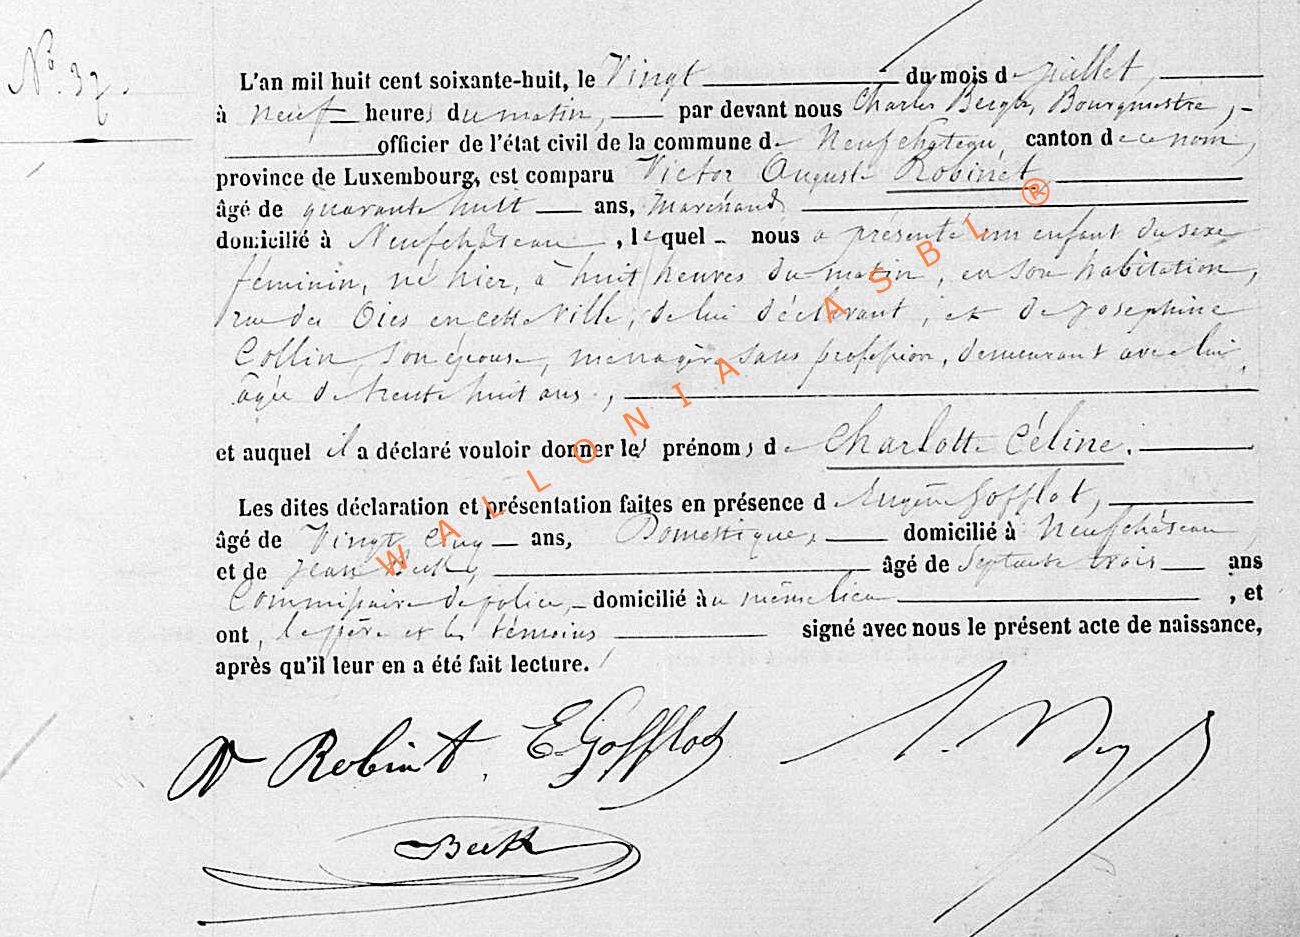 N° 37.
L'an mil huit cent soixante-huit, le Vingt du mois de juillet,
à neuf heures du matin, par devant nous Charles Bergh, Bourgmestre,
officier de l'état civil de la commune de Neufchateau, canton de ce nom,
province de Luxembourg, est comparu Victor Auguste Robinet,
âgé de quarante huit ans, Marchand,
domicilié à Neufchâteau, lequel nous a présenté un enfant du sexe
féminin, né hier, à huit heures du matin, en son habitation,
rue des Oies en cette Ville, de lui déclarant, et de Josephine
Collin, son épouse, menagère sans profession, demeurant avec lui,
âgée de trente huit ans,
et auquel il a déclaré vouloir donner les prénoms de Charlotte Céline.
Les dites déclaration et présentation faites en présence d'Eugène Gofflot,
âgé de Vingt cinq ans, Domestique, domicilié à Neufchâteau
et de Jean Beck, âgé de Septante trois ans
Commissaire de police, domicilié au même lieu, et
ont, le père et les témoins signé avec nous le présent acte de naissance,
après qu'il leur en a été fait lecture.
Vr Robinet, E. Gofflot
Beck
WALLONIA ASBL ®